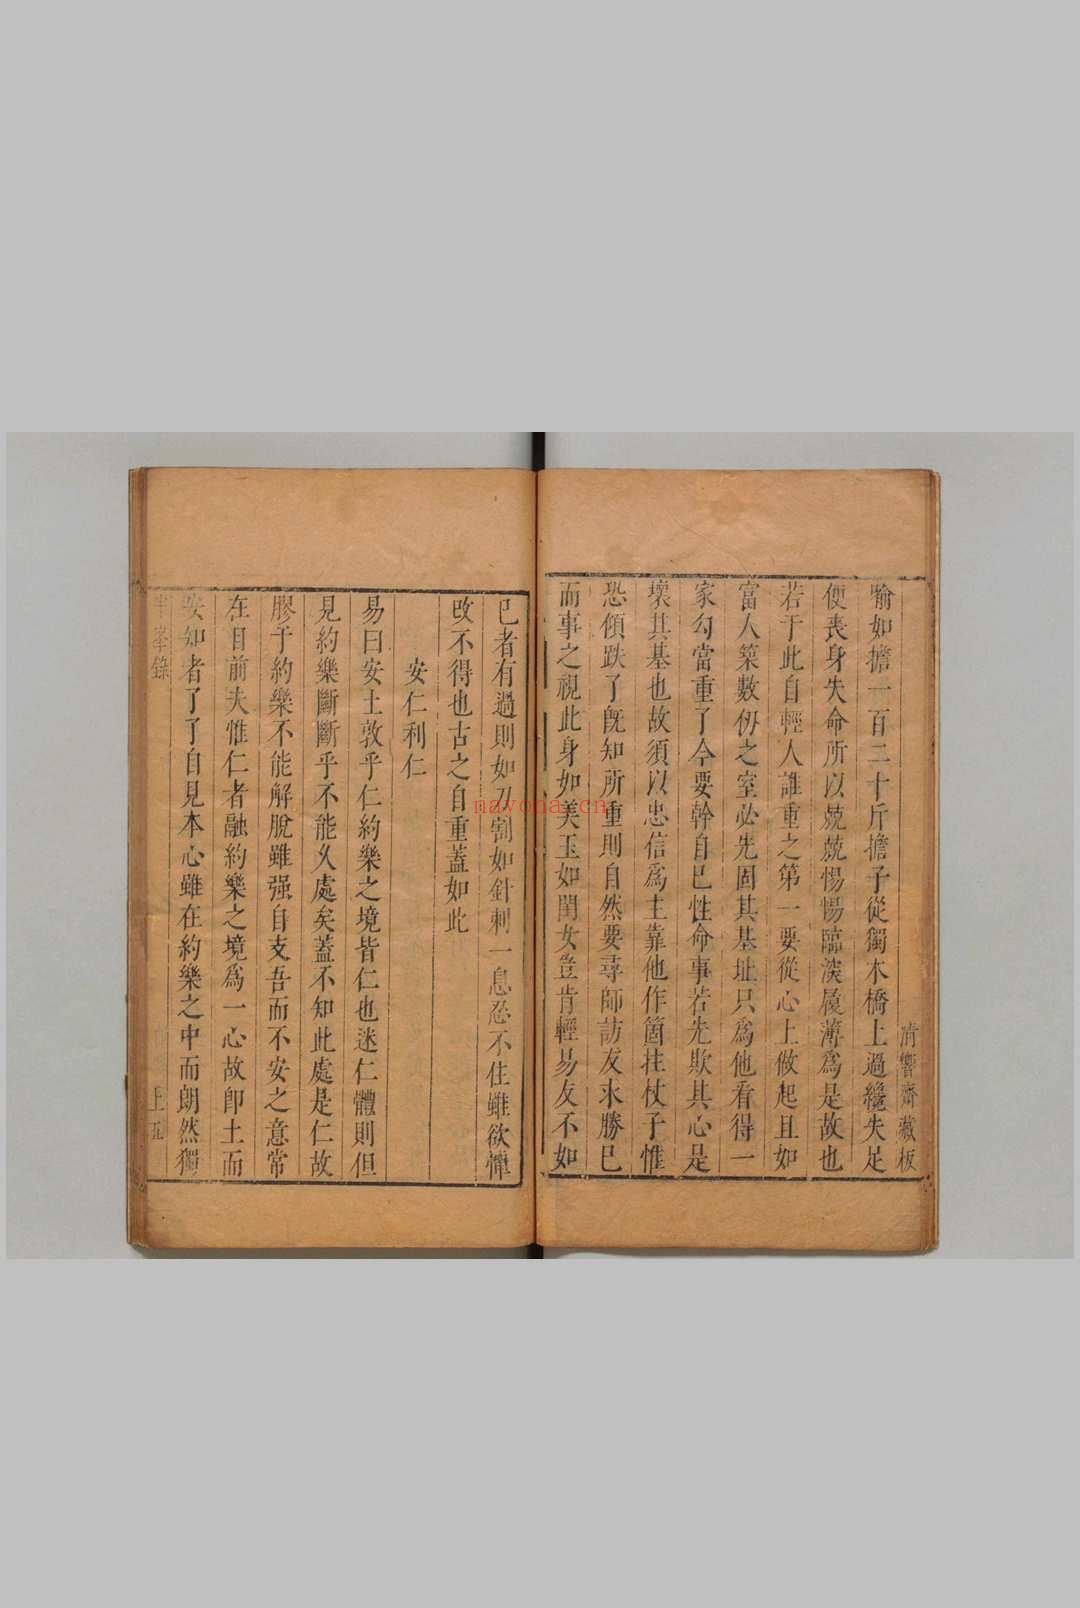 清響齋藏板
喻如擔一百二十斤擔子從獨木橋上過纔失足
便喪身失命所以兢兢惕惕臨深履薄為是故也
若于此自輕人誰重之第一要從心上做起且如
富人築數仞之室必先固其基址只爲他看得一
家勾當重了今要幹自已性命事若先欺其心是
壞其基也故須以忠信爲主靠他作箇拄杖子惟
恐傾跌了旣知所重則自然要尋師訪友求勝已
而事之視此身如美玉如閨女豈肯輕易友不如
已者有過則如刀割如針刺一息忍不住雖欲憚
改不得也古之自重蓋如此
安仁利仁
易曰安土敦乎仁約樂之境皆仁也迷仁體則但
見約樂斷斷乎不能久處矣蓋不知此處是仁故
膠于約樂不能解脫雖强自支吾而不安之意常
在目前夫惟仁者融約樂之境爲一心故卽土而
安如者了了自見本心雖在約樂之中而朗然獨
錄
上五
navona.cn